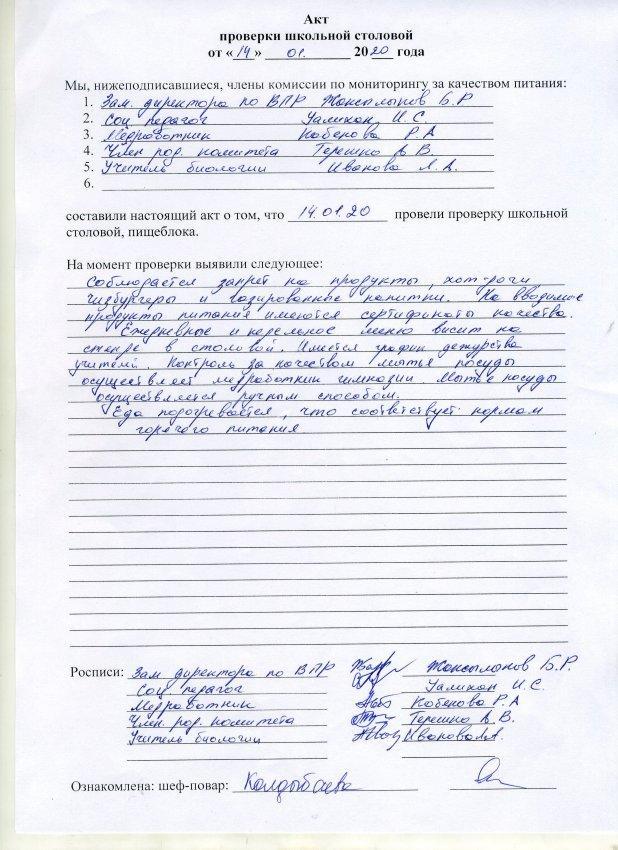 Акт
проверки школьной столовой
от «14» 01. 2020 года
Мы, нижеподписавшиеся, члены комиссии по мониторингу за качеством питания:
1. Зам. директора по ВПР Жаксылыков Б.Р
2. Соц педагог Уалихан И.С.
3. Медработник Кабенова Р.А
4. Член род. комитета Терешко А.В.
5. Учитель биологии Иванова Л.А.
6.
составили настоящий акт о том, что 14.01.20 провели проверку школьной
столовой, пищеблока.
На момент проверки выявили следующее:
Соблюдается запрет на продукты, хот-доги
чизбургеры и газированные напитки. На вводимое
продукты питания имеются сертификаты качества.
Ежедневное и недельное меню висит на
стенде в столовой. Имеется график дежурства
учителей. Контроль за качеством мытья посуды
осуществляет медработник гимназии. Мытье посуды
осуществляется ручным способом.
Еда подогревается, что соответствует нормам
горячего питания
Росписи: Зам директора по ВПР Жаксылыков Б.Р.
Соц педагог Уалихан И.С.
Медработник Кабенова Р.А
Член род. комитета Терешко А.В.
Учитель биологии Иванова Л.А.
Ознакомлена: шеф-повар: Колдыбаева